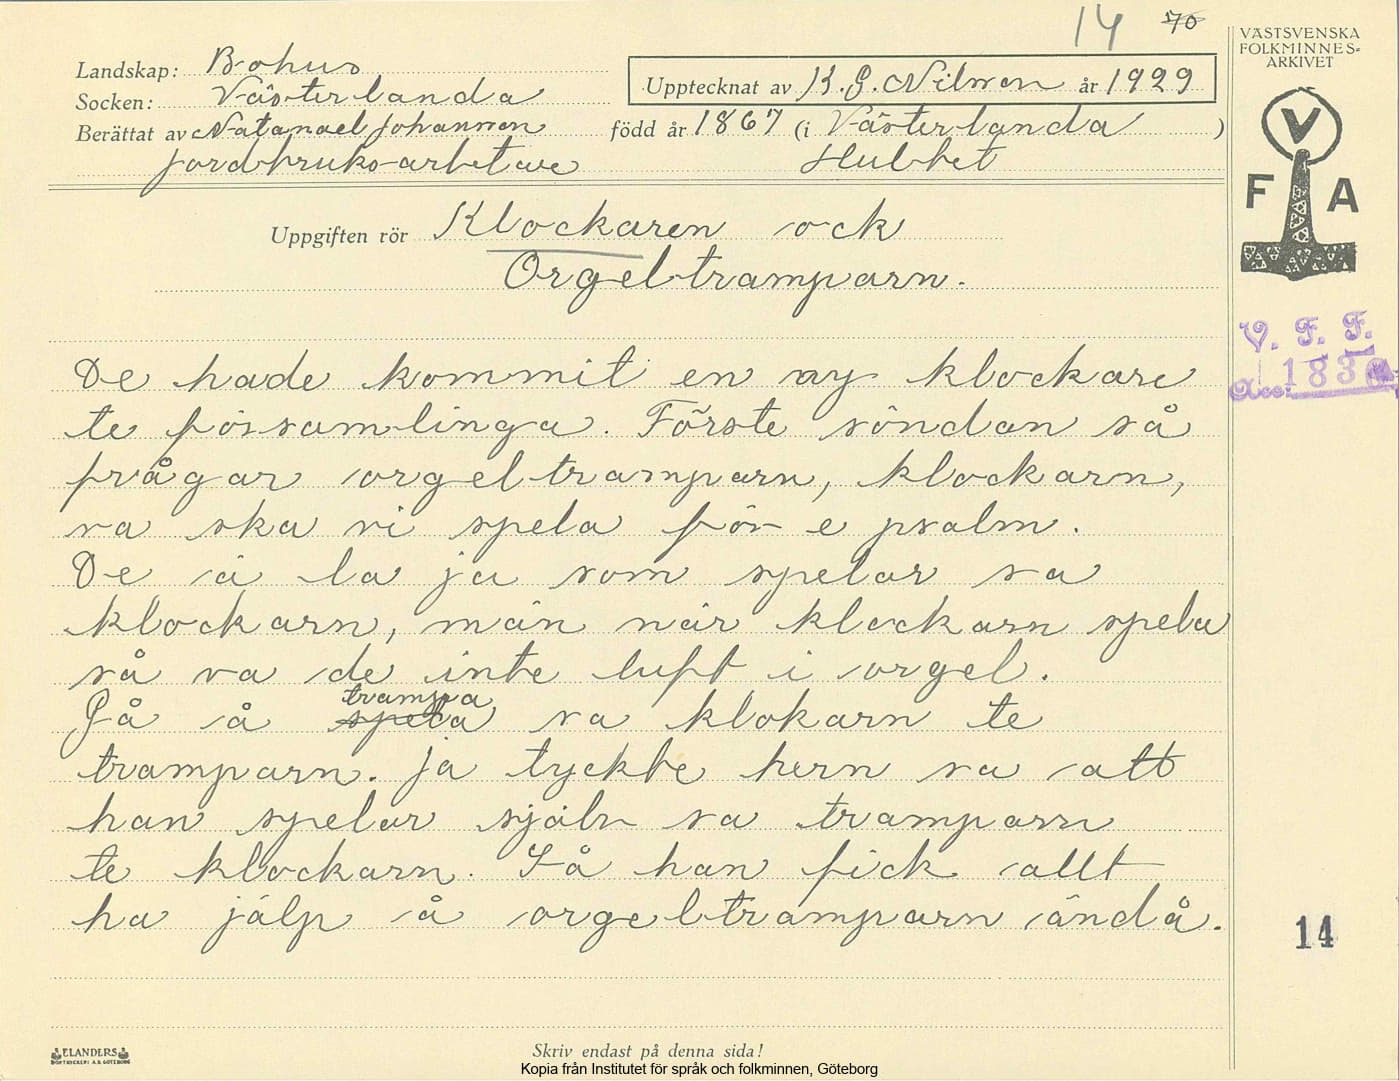 14 70
Landskap: Bohus
Socken: Västerlanda
Upptecknat av K. G. Nilsson år 1929
Berättat av Natanael Johansson född år 1867 (i Västerlanda )
jordbruks-arbetare
Uppgiften rör Klockaren ock
Orgeltramparn.
De hade kommit en ny klockare
te församlinga. Förste söndan så
frågar orgeltramparn, klockarn,
va ska vi spela för e psalm.
De ä la ja som spelar sa
klockarn, män när klockarn spela
så va de inte luft i orgel.
trampa
Gå å spela sa klokarn te
tramparn. Ja tyckte hern sa att
han spelar själv sa tramparn
te klockarn. Så han fick allt
ha jälp å orgeltramparn ändå.
VÄSTSVENSKA
FOLKMINNES-
ARKIVET
V
F A
V. F. F.
Acc.
14
ELANDERS
BOKTRYCKERI A.B. GÖTEBORG
Skriv endast på denna sida!
Kopia från Institutet för språk och folkminnen, Göteborg